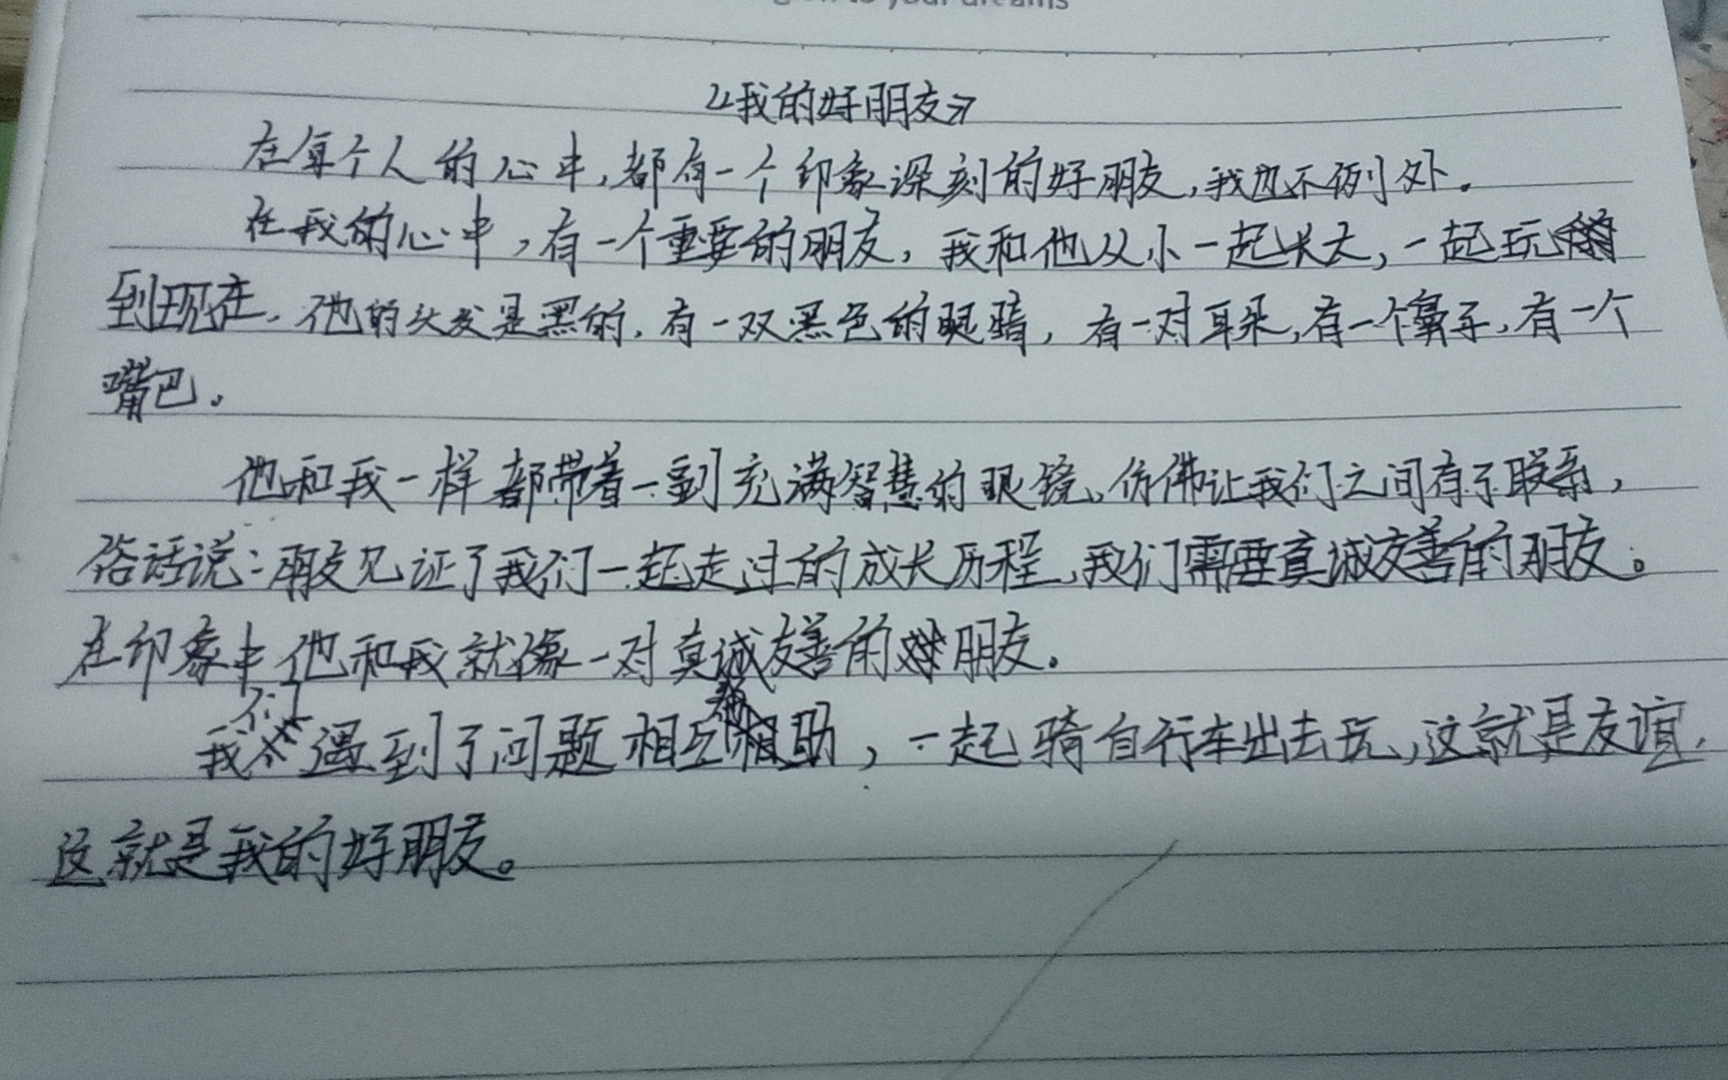 to your dreams
《我的好朋友》
在每个人的心中,都有一个印象深刻的好朋友,我也不例外.
在我的心中,有一个重要的朋友,我和他从小一起长大,一起玩
到现在.他的头发是黑的,有一双黑色的眼睛,有一对耳朵,有一个鼻子,有一个
嘴巴.
他和我一样都带着一副充满智慧的眼镜,仿佛让我们之间有了联系,
俗话说:朋友见证了我们一起走过的成长历程,我们需要真诚友善的朋友。
在印象中他和我就像一对真诚友善的朋友.
我们遇到了问题相互帮助,一起骑自行车出去玩,这就是友谊,
这就是我的好朋友。